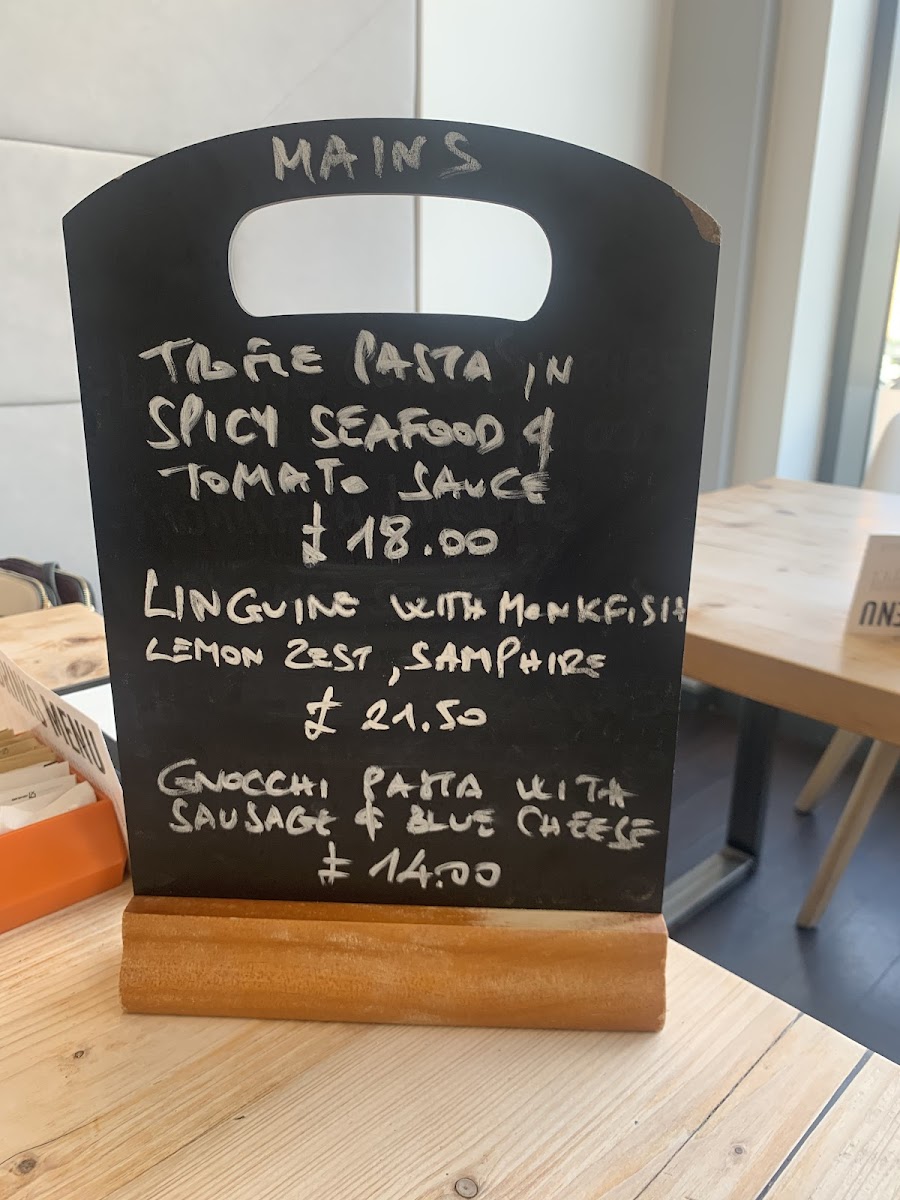 MAINS
TROFIE PASTA IN
SPICY SEAFOOD &
TOMATO SAUCE
£ 18.00
LINGUINE WITH MONKFISH
LEMON ZEST, SAMPHIRE
£ 21.50
GNOCCHI PASTA WITH
SAUSAGE & BLUE CHEESE
£ 14.00
MENU
MENU